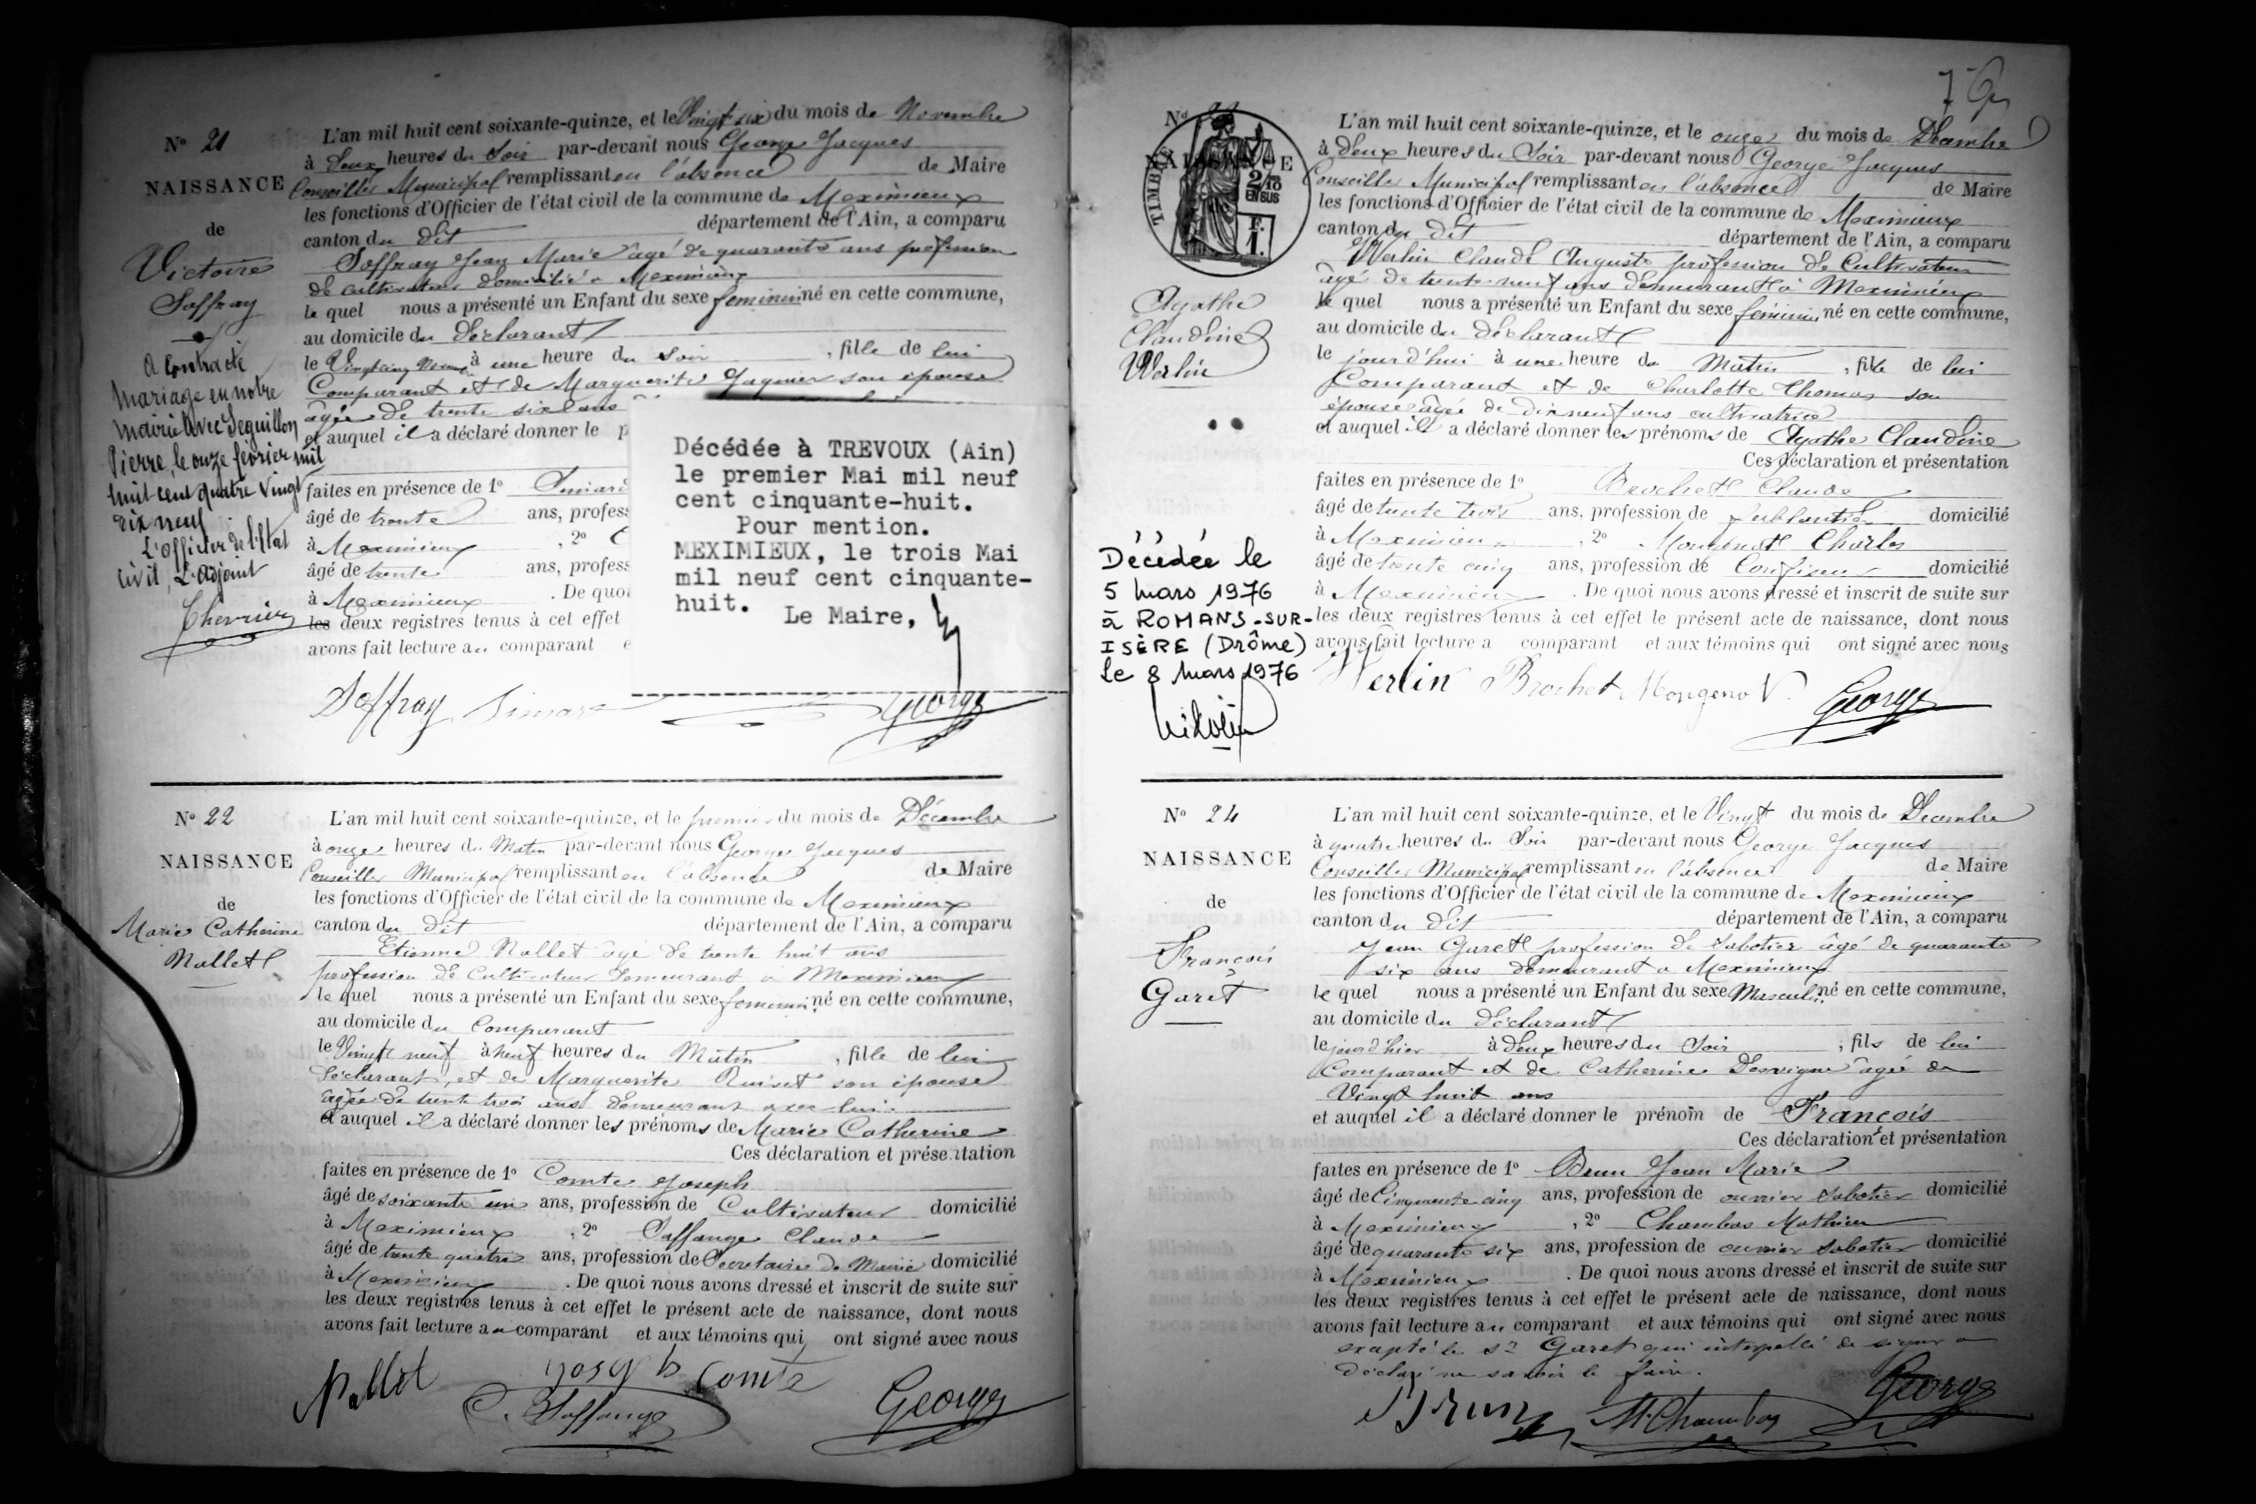 N° 21
NAISSANCE
de
Victoire
Soffray
A Contracté
Mariage en notre
Mairie avec Seguillon
Pierre, le onze février mil
huit cent quatre Vingt
dix neuf
L'officier de l'Etat
Civil, L'adjoint
Chevrier
L'an mil huit cent soixante-quinze, et le Vingt six du mois de Novembre
à deux heures du Soir par-devant nous George Jacques
Conseiller Municipal remplissant en l'absence de Maire
les fonctions d'Officier de l'état civil de la commune de Meximieux
canton du dit département de l'Ain, a comparu
Soffray Jean Marie âgé de quarante ans profession
de cultivateur domicilié à Meximieux
le quel nous a présenté un Enfant du sexe feminin né en cette commune,
au domicile du déclarant
le Vingt cinq à une heure du soir , fille de lui
Comparant et de Marguerite son épouse
âgée de trente six ans
et auquel il a déclaré donner le p
faites en présence de 1°
âgé de trente ans, profess
à Meximieux , 2°
âgé de trente ans, profess
à Meximieux . De quoi
les deux registres tenus à cet effet
avons fait lecture au comparant e
Décédée à TREVOUX (Ain)
le premier Mai mil neuf
cent cinquante-huit.
Pour mention.
MEXIMIEUX, le trois Mai
mil neuf cent cinquante-
huit.
Le Maire,
Soffray George
N° 22
NAISSANCE
de
Marie Catherine
Nallet
L'an mil huit cent soixante-quinze, et le premier du mois de Décembre
à onze heures du Matin par-devant nous George Jacques
Conseiller Municipal remplissant en l'absence de Maire
les fonctions d'Officier de l'état civil de la commune de Meximieux
canton du dit département de l'Ain, a comparu
Etienne Nallet âgé de trente huit ans
profession de Cultivateur demeurant à Meximieux
le quel nous a présenté un Enfant du sexe feminin né en cette commune,
au domicile du Comparant
le Vingt neuf à neuf heures du Matin , fille de lui
déclarant, et de Marguerite Ruiset son épouse
âgée de trente trois ans demeurant avec lui
et auquel il a déclaré donner les prénoms de Marie Catherine
Ces déclaration et présentation
faites en présence de 1° Comte Joseph
âgé de soixante un ans, profession de Cultivateur domicilié
à Meximieux , 2° Soffange Claude
âgé de trente quatre ans, profession de Secretaire de Mairie domicilié
à Meximieux . De quoi nous avons dressé et inscrit de suite sur
les deux registres tenus à cet effet le présent acte de naissance, dont nous
avons fait lecture au comparant et aux témoins qui ont signé avec nous
Nallet Joseph Comte
C. Soffange George
N°
NAISSANCE
TIMBRE
2/10
EN SUS
F.
1.
Agathe
Claudine
Werlin
Décédée le
5 mars 1976
à ROMANS-SUR-
ISÈRE (Drôme)
le 8 mars 1976
L'an mil huit cent soixante-quinze, et le onze du mois de Décembre
à deux heures du Soir par-devant nous George Jacques
Conseiller Municipal remplissant en l'absence de Maire
les fonctions d'Officier de l'état civil de la commune de Meximieux
canton du dit département de l'Ain, a comparu
Werlin Claude Auguste profession de Cultivateur
âgé de trente neuf ans demeurant à Meximieux
le quel nous a présenté un Enfant du sexe féminin né en cette commune,
au domicile du déclarant
le jourd'hui à une heure du Matin , fille de lui
Comparant et de Charlotte Thomas son
épouse âgée de dix neuf ans cultivatrice
et auquel il a déclaré donner les prénoms de Agathe Claudine
Ces déclaration et présentation
faites en présence de 1° Brochet Claude
âgé de trente trois ans, profession de ferblantier domicilié
à Meximieux , 2° Mongenot Charles
âgé de trente cinq ans, profession de Confiseur domicilié
à Meximieux . De quoi nous avons dressé et inscrit de suite sur
les deux registres tenus à cet effet le présent acte de naissance, dont nous
avons fait lecture a comparant et aux témoins qui ont signé avec nous
Werlin Brochet Mongenot George
N° 24
NAISSANCE
de
François
Garet
L'an mil huit cent soixante-quinze, et le Vingt du mois de Décembre
à quatre heures du Soir par-devant nous George Jacques
Conseiller Municipal remplissant en l'absence de Maire
les fonctions d'Officier de l'état civil de la commune de Meximieux
canton du dit département de l'Ain, a comparu
Jean Garet profession de Sabotier âgé de quarante
six ans demeurant à Meximieux
le quel nous a présenté un Enfant du sexe Masculin né en cette commune,
au domicile du déclarant
le jourd'hier à deux heures du Soir , fils de lui
Comparant et de Catherine Desvigne âgée de
Vingt huit ans
et auquel il a déclaré donner le prénom de François
Ces déclaration et présentation
faites en présence de 1° Brun Jean Marie
âgé de Cinquante cinq ans, profession de ouvrier sabotier domicilié
à Meximieux , 2° Chambas Mathieu
âgé de quarante six ans, profession de ouvrier sabotier domicilié
à Meximieux . De quoi nous avons dressé et inscrit de suite sur
les deux registres tenus à cet effet le présent acte de naissance, dont nous
avons fait lecture au comparant et aux témoins qui ont signé avec nous
excepté le Sr Garet qui interpellé de signer a
déclaré ne savoir le faire.
Brun M. Chambas George